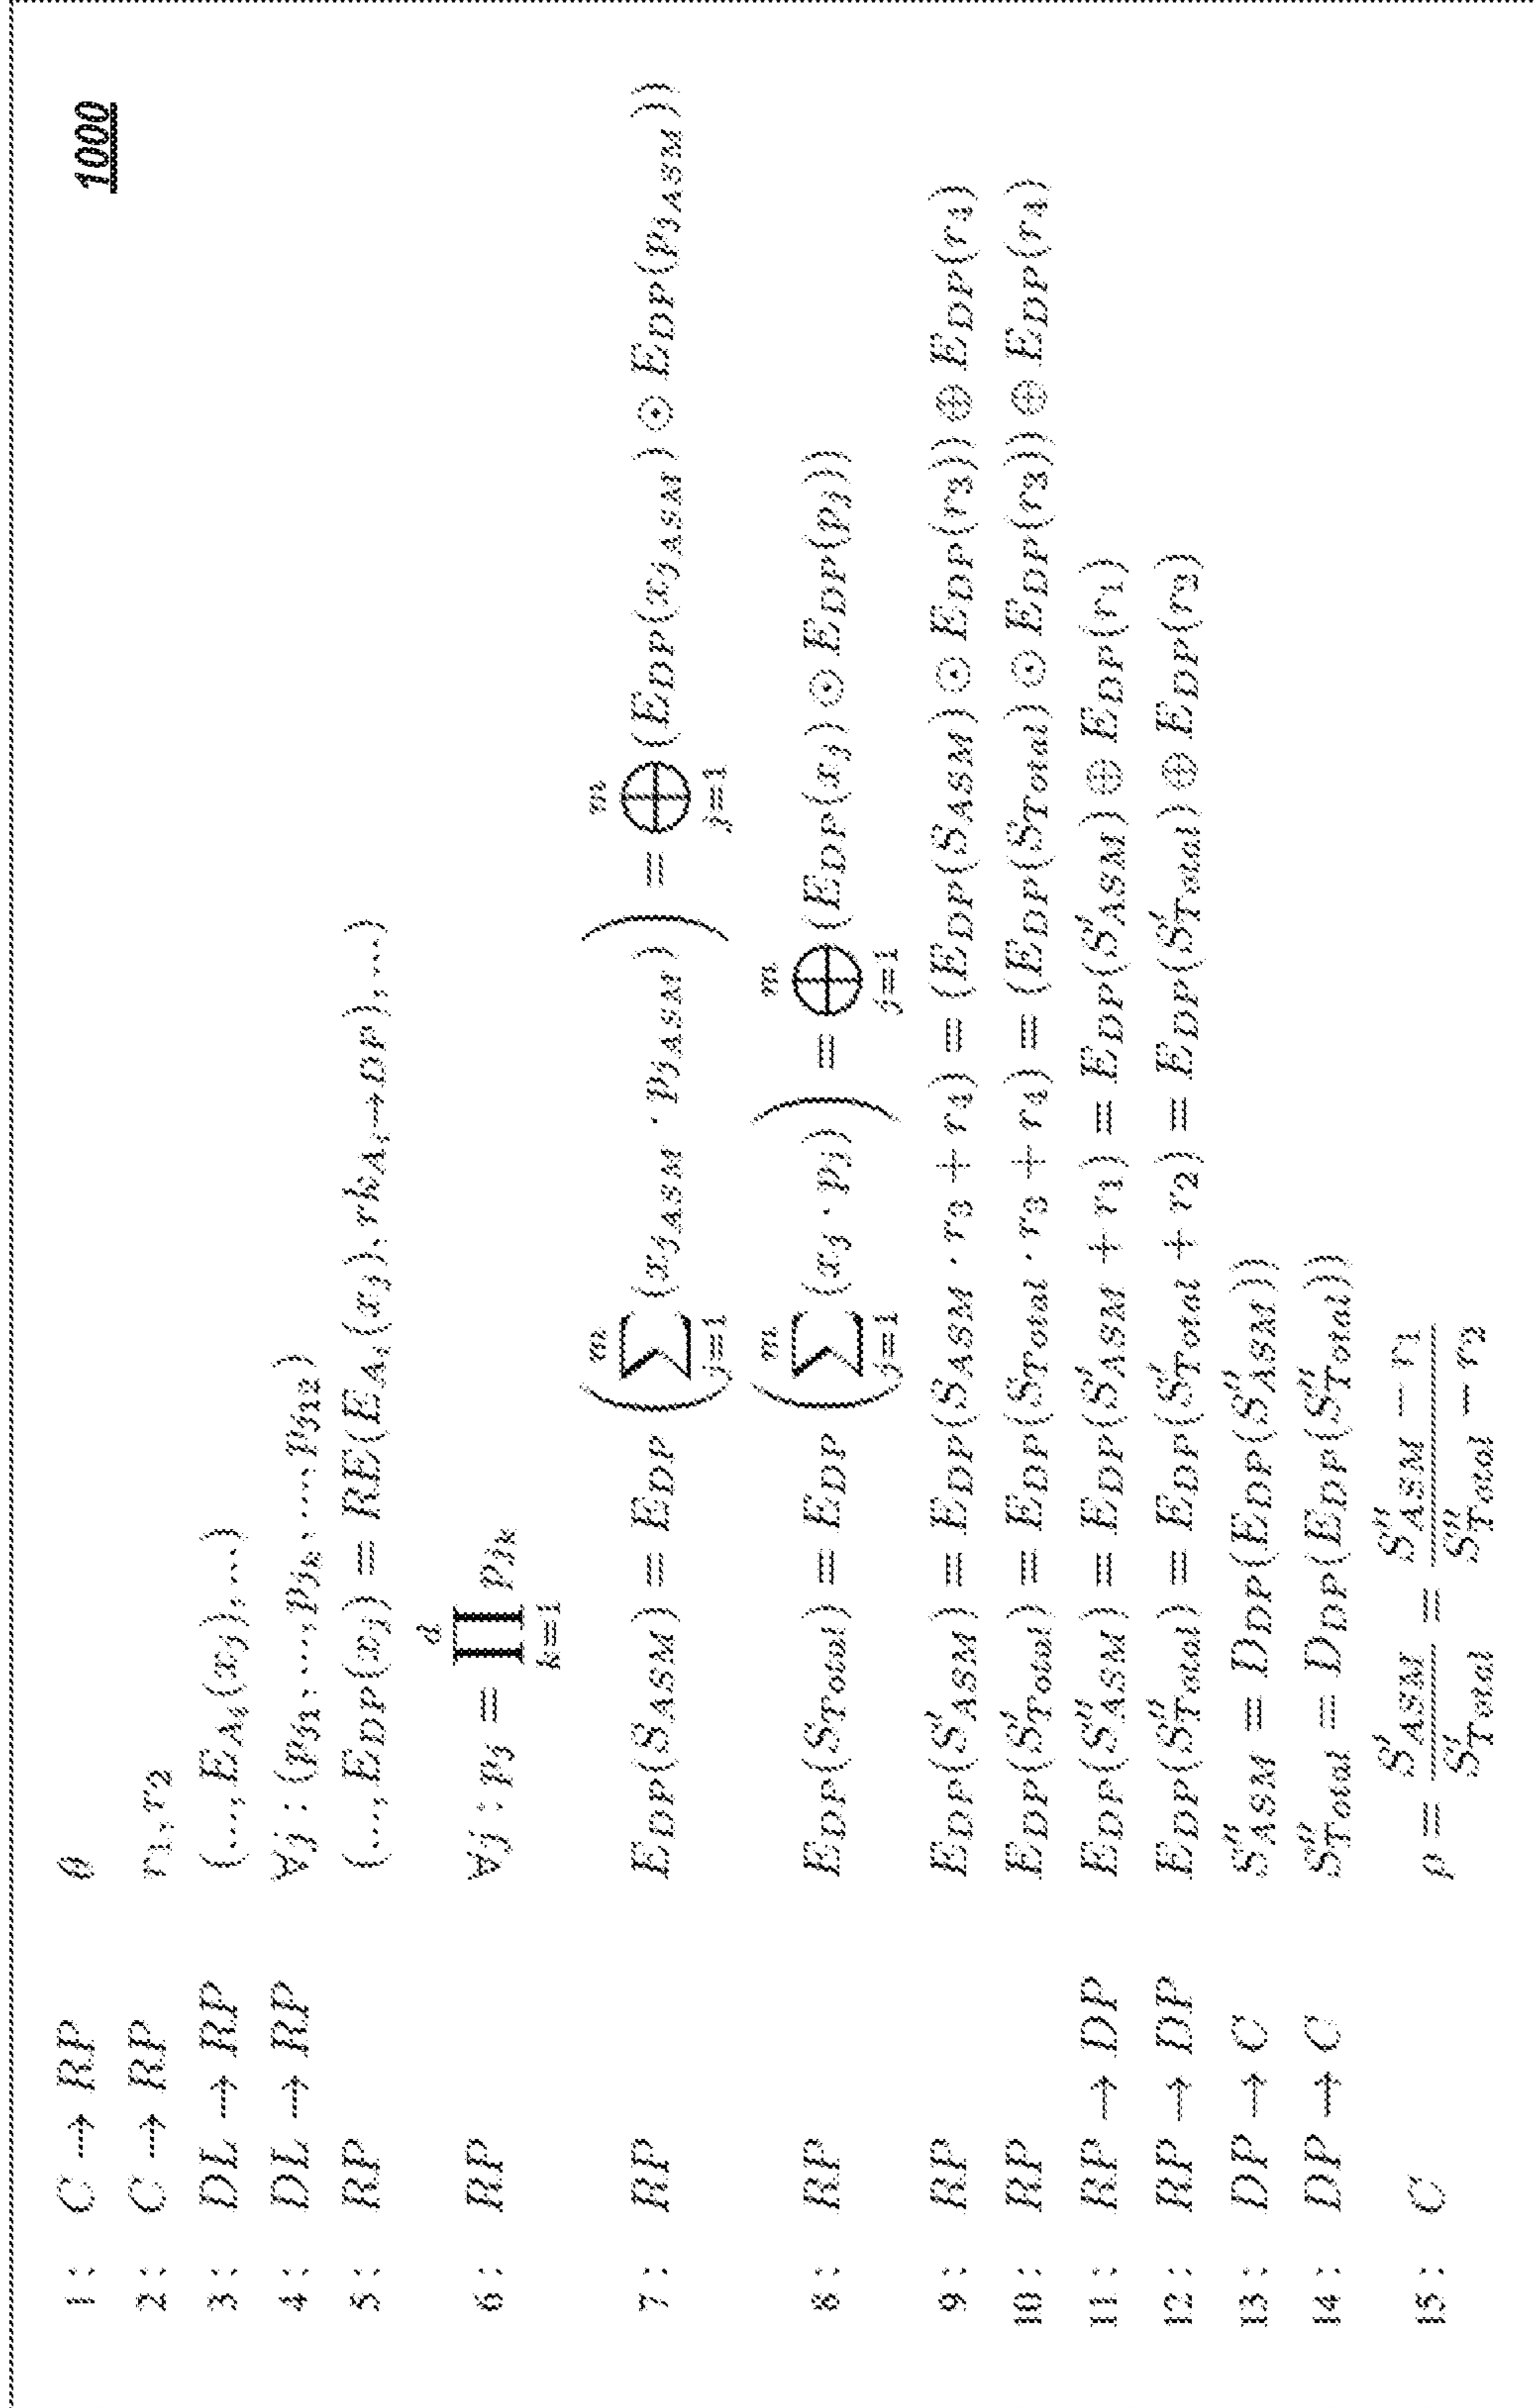 1000
1 : C → RP θ
2 : C → RP r₁, r₂
3 : DL → RP (..., E_{A_i}(x_j), ...)
4 : DL → RP ∀j : (p_{j_1}, ..., p_{j_k}, ..., p_{j_{12}})
5 : RP (..., E_{DP}(x_j) = RE(E_{A_i}(x_j), rk_{A_i→DP}), ...)
6 : RP ∀j : p_j = ∏_{k=1}^{d} p_{j_k}
7 : RP E_{DP}(S_{ASM}) = E_{DP}(∑_{j=1}^{m} (x_{j_{ASM}} · p_{j_{ASM}})) = ⊕_{j=1}^{m} (E_{DP}(x_{j_{ASM}}) ⊙ E_{DP}(p_{j_{ASM}}))
8 : RP E_{DP}(S_{Total}) = E_{DP}(∑_{j=1}^{m} (x_j · p_j)) = ⊕_{j=1}^{m} (E_{DP}(x_j) ⊙ E_{DP}(p_j))
9 : RP E_{DP}(S'_{ASM}) = E_{DP}(S_{ASM} · r₃ + r₄) = (E_{DP}(S_{ASM}) ⊙ E_{DP}(r₃)) ⊕ E_{DP}(r₄)
10 : RP E_{DP}(S'_{Total}) = E_{DP}(S_{Total} · r₃ + r₄) = (E_{DP}(S_{Total}) ⊙ E_{DP}(r₃)) ⊕ E_{DP}(r₄)
11 : RP → DP E_{DP}(S''_{ASM}) = E_{DP}(S'_{ASM} + r₁) = E_{DP}(S'_{ASM}) ⊕ E_{DP}(r₁)
12 : RP → DP E_{DP}(S''_{Total}) = E_{DP}(S'_{Total} + r₂) = E_{DP}(S'_{Total}) ⊕ E_{DP}(r₂)
13 : DP → C S''_{ASM} = D_{DP}(E_{DP}(S''_{ASM}))
14 : DP → C S''_{Total} = D_{DP}(E_{DP}(S''_{Total}))
15 : C ρ = S'_{ASM} / S'_{Total} = (S''_{ASM} − r₁) / (S''_{Total} − r₂)